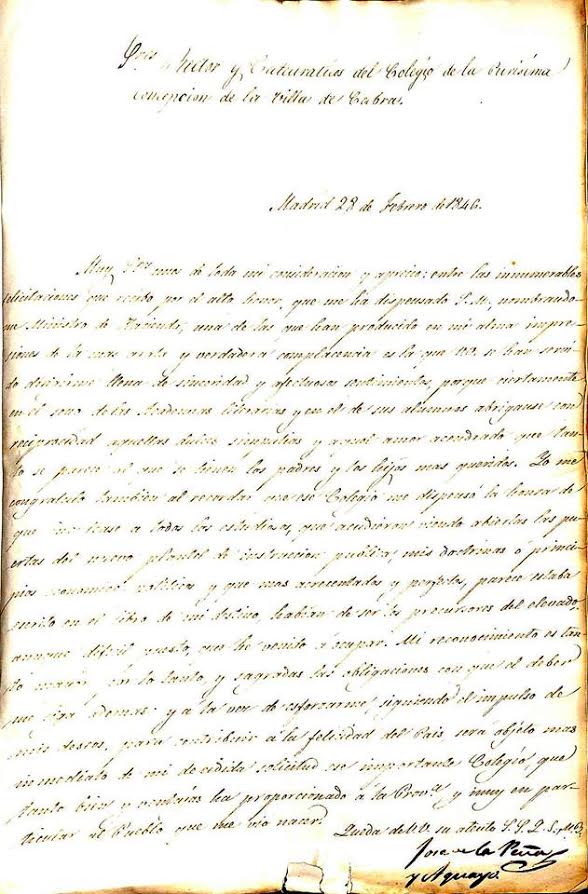 Sres Rector y Catedraticos del Colegio de la Purisima
Concepcion de la Villa de Cabra.
Madrid 28 de Febrero de 1846.
Muy Sres mios de toda mi consideracion y aprecio: entre las innumerables
felicitaciones que recibo por el alto honor, que me ha dispensado S.M. nombrando
me Ministro de Hacienda, una de las que han producido en mi alma impre
siones de la mas y verdadera complacencia es la que VV. se han servi
do dirirme llena de sinceridad y afectuosos sentimientos, porque ciertamente
en el seno de las Academias literarias y en el de sus alumnos abrigause con
reciprocidad aquellas dulces simpatias y aquel amor acendrado que tan
to se parece al que se tienen los padres y los hijos mas queridos. Yo me
congratulo tambien al recordar que ese Colegio me dispensó la honra de
que a todos los estudiosos, que acudieron viendo abiertas las pu
ertas del nuevo plantel de instruccion publica, mis doctrinas ó princi
pios economico politicos y que mas acrecentados y perfectos, parece estaba
escrito en el libro de mi destino, habian de ser los precursores del elevado
aunque dificil puesto, que he venido á ocupar. Mi reconocimiento es tan
to mayor, por lo tanto, y sagradas las obligaciones con que el deber
me liga ademas: y a la vez de esforzarme, siguiendo el impulso de
mis deseos, para contribuir a la felicidad del Pais será objeto mas
inmediato de mi decidida solicitud ese importante Colegio, que
tanto bien y ventajas ha proporcionado á la Prova y muy en par-
ticular al Pueblo que me vio nacer.
Queda de VV. su atento S.S.Q.S.M.B.
Jose de la Peña
y Aguayo.